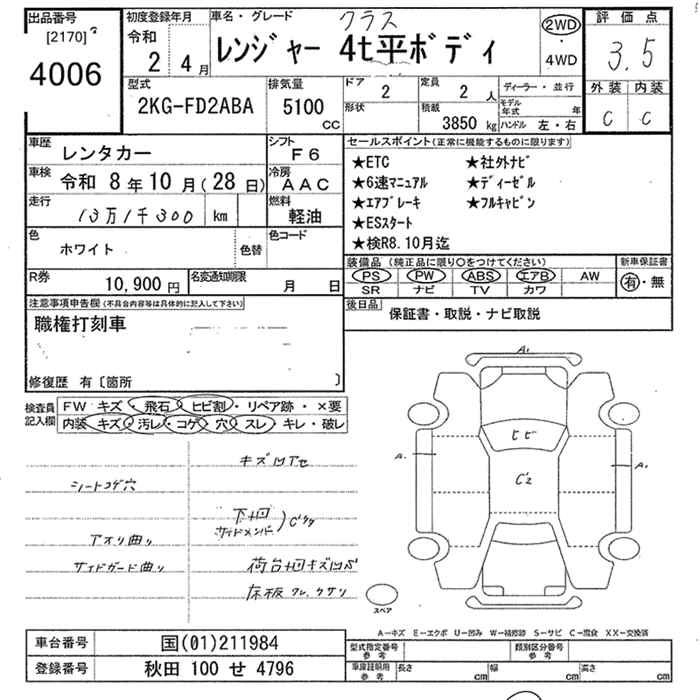 出品番号
[2170]
4006
初度登録年月
令和
2 4 月
車名・グレード
クラス
レンジャー 4t平ボディ
2WD
・
4WD
評価点
3.5
外装 内装
C C
型式
2KG-FD2ABA
排気量
5100
CC
ドア
2
形状
定員
2 人
積載
3850 kg
ディーラー・並行
モデル年式 年
ハンドル 左・右
車歴
レンタカー
シフト
F6
車検
令和 8 年 10 月(28 日)
冷房
AAC
走行
13万1千300 km
燃料
軽油
色
ホワイト
色替
色コード
R券
10,900 円
名変通知期限
月 日
セールスポイント(正常に機能するものに限ります)
★ETC ★社外ナビ
★6速マニュアル ★ディーゼル
★エアブレーキ ★フルキャビン
★ESスタート
★検R8.10月迄
装備品 (純正品に限り○をつけてください)
新車保証書
PS PW ABS エアB AW
SR ナビ TV カワ
有・無
後日品
保証書・取説・ナビ取説
注意事項申告欄(不具合内容等は具体的に記入して下さい)
職権打刻車
修復歴 有〔箇所 〕
検査員
記入欄
FW キズ・飛石・ヒビ割・リペア跡・×要
内装 キズ・汚レ・コゲ・穴・スレ・キレ・破レ
キズ凹アセ
シートコゲ穴
下廻
サイドメンバー
アオリ曲り
サイドガード曲り
荷台廻キズ凹
床板
A1
ヒビ
C2
A1
A1
スペア
A-キズ E-エクボ U-凹み W-補修跡 S-サビ C-腐食 XX-交換済
車台番号
国(01)211984
登録番号
秋田 100 せ 4796
型式指定番号
参考
類別区分番号
参考
車庫証明用
参考
長さ cm
幅 cm
高さ cm